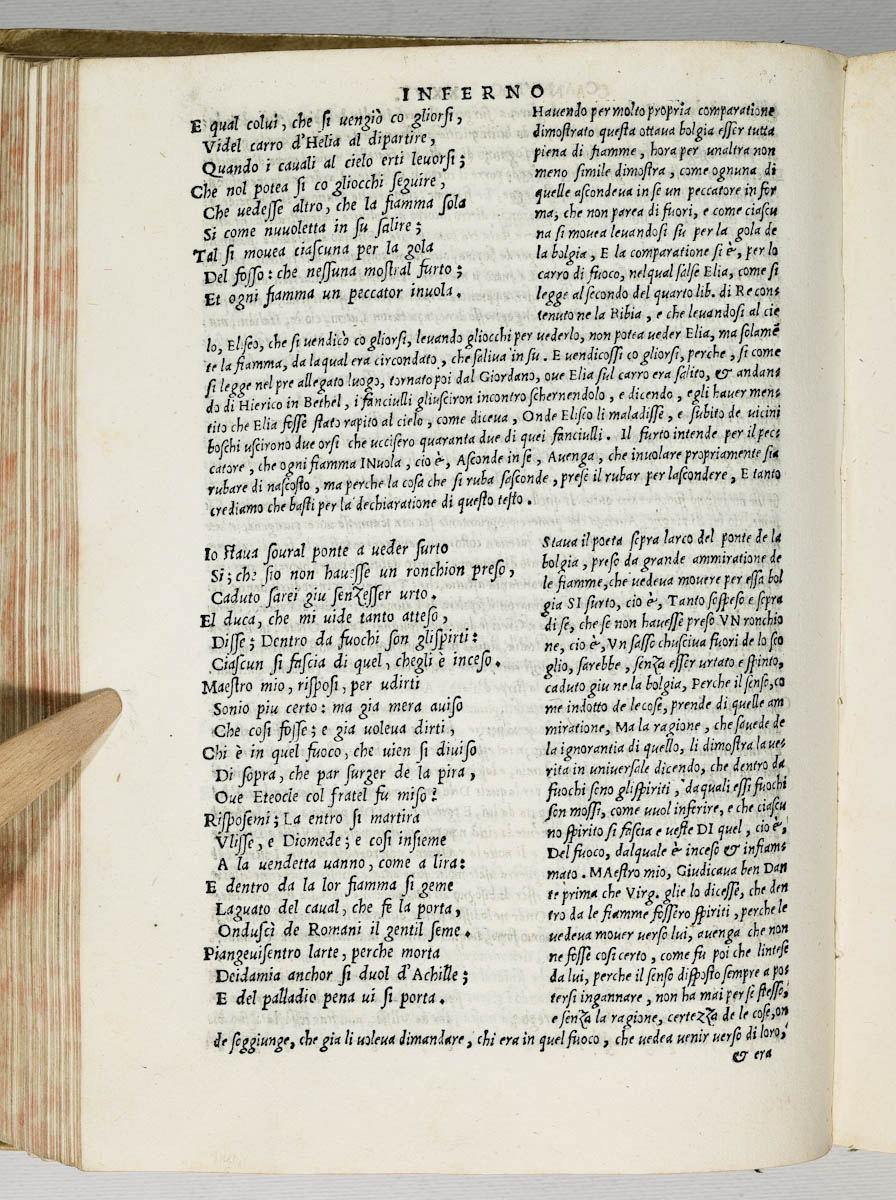 INFERNO
E qual colui, che si vengiò co gliorsi,
Videl carro d'Helia al dipartire,
Quando i cavali al cielo erti levorsi;
Che nol potea si co gliocchi seguire,
Che vedesse altro, che la fiamma sola
Si come nuvoletta in su salire;
Tal si movea ciascuna per la gola
Del fosso: che nessuna mostral furto;
Et ogni fiamma un peccator invola.
Havendo per molto propria comparatione
dimostrato questa ottava bolgia esser tutta
piena di fiamme, hora per unaltra non
meno simile dimostra, come ognuna di
quelle ascondeva in se un peccatore in for
ma, che non parea di fuori, e come ciascu
na si movea levandosi su per la gola de
la bolgia, E la comparatione si è, per lo
carro di fuoco, nelqual salse Elia, come si
legge al secondo del quarto lib. di Re con-
tenuto ne la Bibia, e che levandosi al cie
lo, Eliseo, che si vendicò co gliorsi, levando gliocchi per vederlo, non potea veder Elia, ma solamẽ
te la fiamma, da laqual era circondato, che saliva in su. E vendicossi co gliorsi, perche, si come
si legge nel pre allegato luogo, tornato poi dal Giordano, ove Elia sul carro era salito, & andan
do di Hierico in Bethel, i fanciulli gliusciron incontro schernendolo, e dicendo, egli haver men-
tito che Elia fosse stato rapito al cielo, come diceva, Onde Eliseo li maladisse, e subito de vicini
boschi uscirono due orsi che uccisero quaranta due di quei fanciulli. Il furto intende per il pec-
catore, che ogni fiamma INvola, cio è, Asconde in se, Avenga, che involare propriamente sia
rubare di nascosto, ma perche la cosa che si ruba sasconde, prese il rubar per lascondere, E tanto
crediamo che basti per la dechiaratione di questo testo.
Io stava soural ponte a veder surto
Si; che sio non havesse un ronchion preso,
Caduto sarei giu senzesser urto.
El duca, che mi vide tanto atteso,
Disse; Dentro da fuochi son glispirti:
Ciascun si fascia di quel, chegli è inceso.
Maestro mio, risposi, per udirti
Sonio piu certo: ma gia mera aviso
Che cosi fosse; e gia voleva dirti,
Chi è in quel fuoco, che vien si diviso
Di sopra, che par surger de la pira,
Ove Eteocle col fratel fu miso?
Risposemi; La entro si martira
Vlisse, e Diomede; e cosi insieme
A la vendetta vanno, come a lira:
E dentro da la lor fiamma si geme
Laguato del caval, che fe la porta,
Onduscì de Romani il gentil seme.
Piangevisentro larte, perche morta
Deidamia anchor si duol d'Achille;
E del palladio pena vi si porta.
Stava il poeta sopra larco del ponte de la
bolgia, preso da grande ammiratione de
le fiamme, che vedeva movere per essa bol
gia SI surto, cio è, Tanto sospeso e sopra
di se, che se non havesse preso VN ronchio
ne, cio è, Vn sasso chusciva fuori de lo sco
glio, sarebbe, senza esser urtato e spinto,
caduto giu ne la bolgia, Perche il senso, co
me indotto de le cose, prende di quelle am
miratione, Ma la ragione, che savede de
la ignorantia di quello, li dimostra la ve-
rita in universale dicendo, che dentro da
fuochi sono glispiriti, da quali essi fuochi
son mossi, come vuol inferire, e che ciascu
no spirito si fascia e veste DI quel, cio è,
Del fuoco, dalquale è inceso & infiam-
mato. MAestro mio, Giudicava ben Dan
te prima che Virg. glie lo dicesse, che den
tro da le fiamme fossero spiriti, perche le
vedeva mover verso lui, avenga che non
ne fosse cosi certo, come fu poi che lintese
da lui, perche il senso disposto sempre a po-
tersi ingannare, non ha mai per se stesso,
e senza la ragione, certezza de le cose, on
de soggiunge, che gia li voleva dimandare, chi era in quel fuoco, che vedea venir verso di loro,
& era